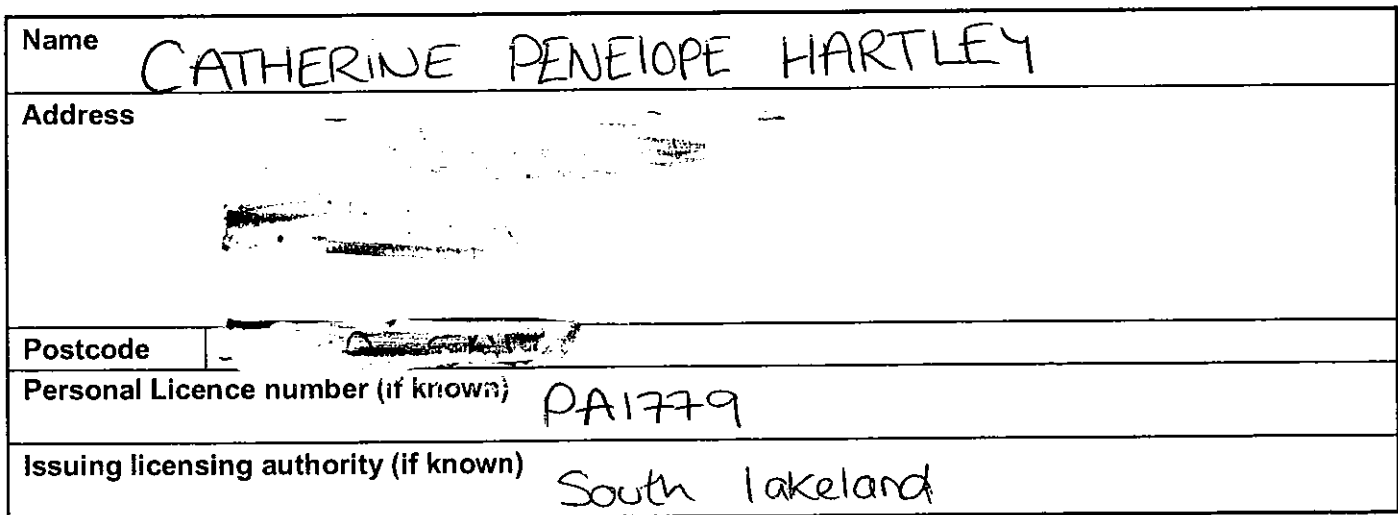 Name CATHERINE PENELOPE HARTLEY
Address
Postcode
Personal Licence number (if known) PA1779
Issuing licensing authority (if known) South lakeland